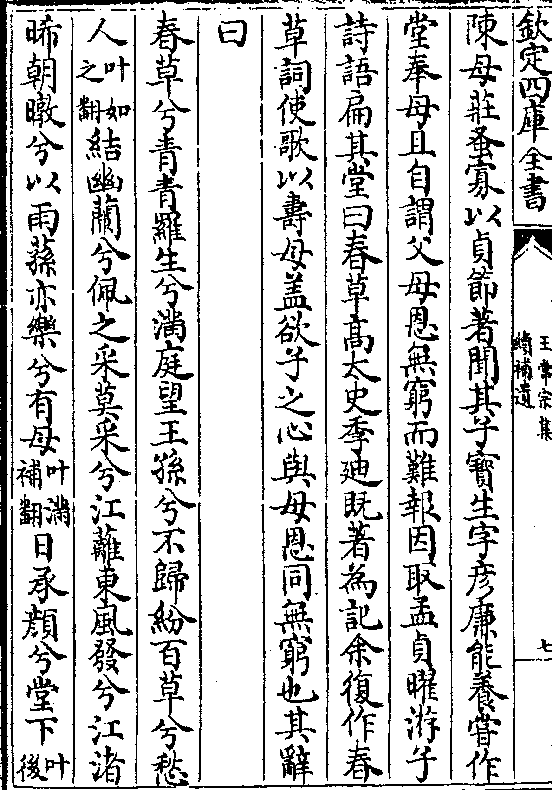 欽定四庫全書
王常宗集
續補遺
七
陳母莊蚤寡以貞節著聞其子寶生字彥廉能養嘗作
堂奉母且自謂父母恩無窮而難報因取孟貞曜游子
詩語扁其堂曰春草高太史季廸既著為記余復作春
草詞使歌以壽母盖欲子之心與母恩同無窮也其辭
曰
春草兮青青羅生兮満庭望王孫兮不歸紛百草兮愁
人叶如之翻結幽蘭兮佩之采莫采兮江蘺東風發兮江渚
晞朝暾兮以雨蓀亦樂兮有母叶満補翻日承顔兮堂下叶後